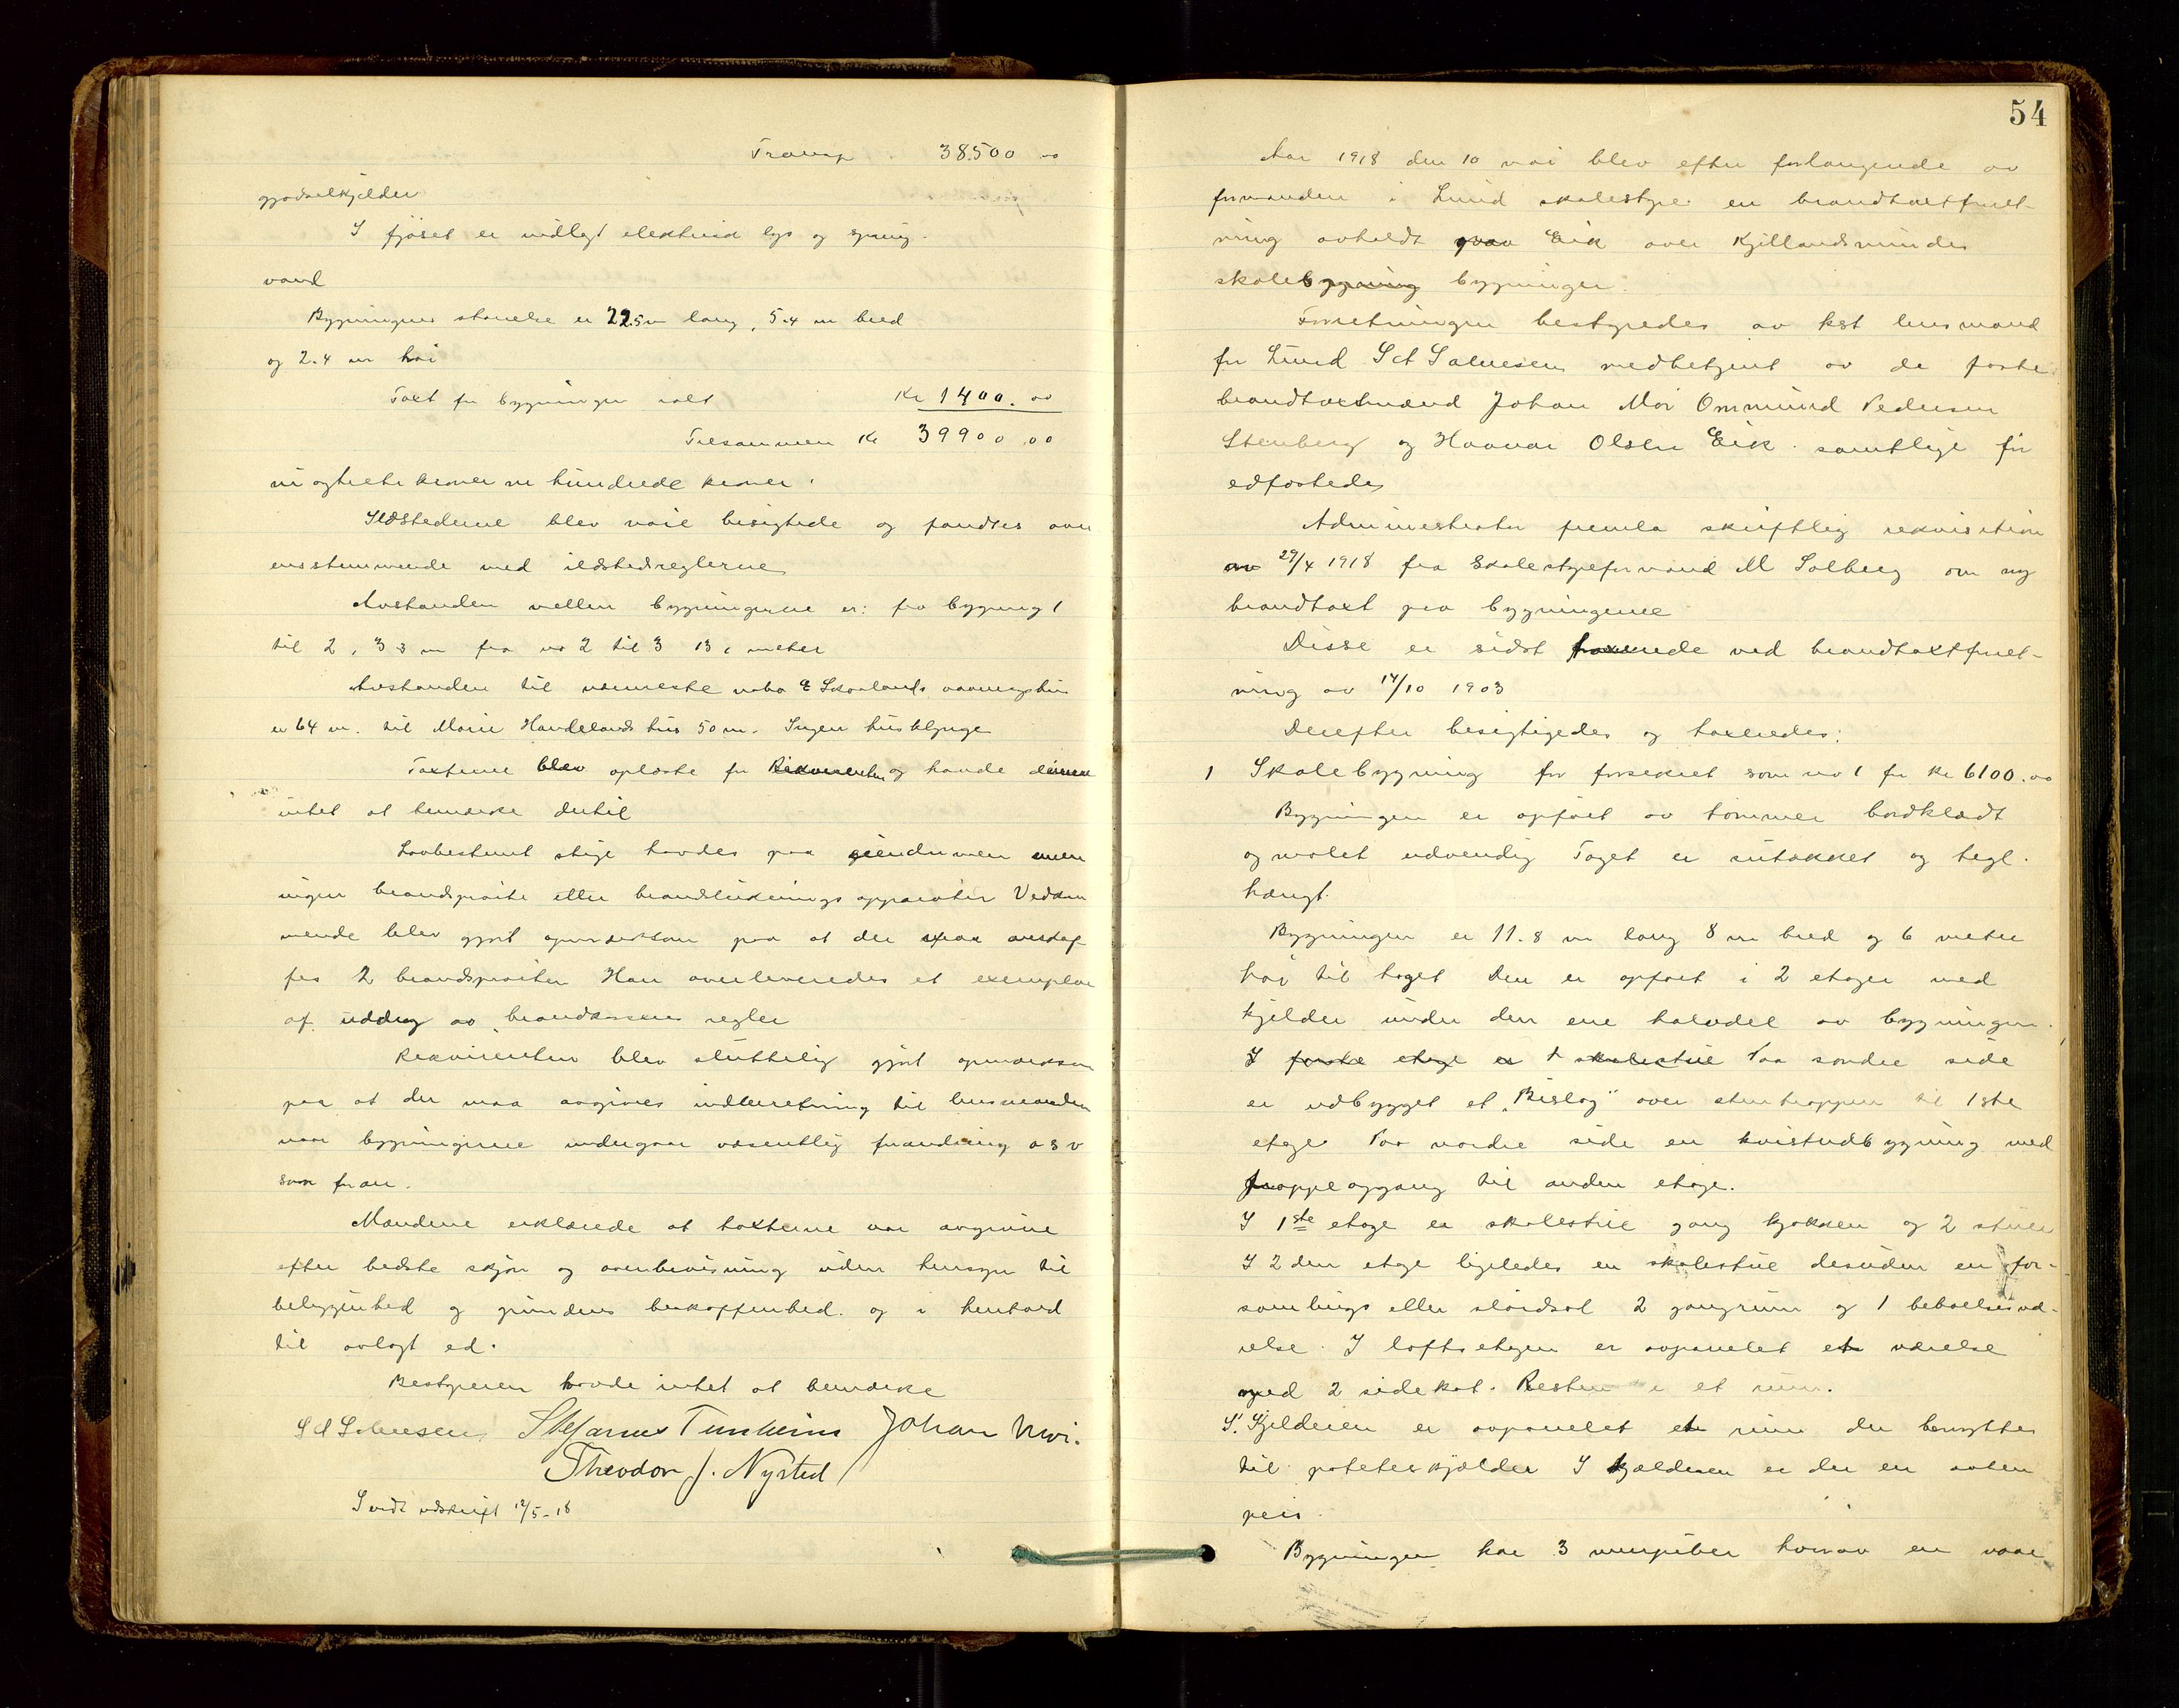 Transp 38500 00
gjødselkjelder
I fjøset er indlagt elektrisk lys og spring-
vand
Bygningens størrelse er 22.5 m lang, 5.4 m bred
og 2.4 m høi
Taxt for bygningen ialt Kr 1400.00
Tilsammen Kr 39900.00
ni hundrede kroner.
Ildstederne blev nøie besigtede og fandtes over
ensstemmende med ildstedsreglerne
Avstanden mellem bygningerne er: fra bygning 1
til 2, 3.3 m fra no 2 til 3 13, meter
Avstanden til nærmeste nabo E Skaalands vaaningshus
er 64 m. til Marie Handelands hus 50 m. Ingen husklynge
Taxterne blev oplæste for Rekvirenten og havde denne
intet at bemærke dertil
Lovbestemt stige havdes paa eiendommen men
ingen brandsprøite eller brandsluknings apparater Vedkom
mende blev gjort opmerksom paa at der maa anskaf
fes 2 brandsprøiter Han overleveredes et exemplar
af uddrag av brandkassens regler
Rekvirenten blev sluttelig gjort opmerksom
paa at der maa avgives indberetning til lensmanden
naar bygningerne undergaar væsentlig forandring o s v
som foran.
Mændene erklærede at taxterne var avgivne
efter bedste skjøn og overbevisning uden hensyn til
beliggenhed og grundens beskaffenhed. og i henhold
til avlagt ed.
Bestyreren havde intet at bemærke
S d Salvesen Johan Moi.
Theodor J. Nysted
Indt utskrift 12/5-18
54
Aar 1918 den 10 mai blev efter forlangende av
formanden i Lund skolestyre en brandtaxtforret-
ning avholdt paa Eik over Kjellandsmindes
skolebygning bygninger.
Forretningen bestyredes av kst lensmand
for Lund S d Salvesen medbetjent av de faste
brandtaxtmænd Johan Moi Ommund Pedersen
Stenberg og Haavar Olsen Eik samtlige før
edfæstede
Administrator fremla skriftlig rekvisition
av 29/4 1918 fra Skolestyreformand M Solberg om ny
brandtaxt paa bygningerne
Disse er sidst taxerede ved brandtaxtforret-
ning av 14/10 1903
Derefter besigtigedes og taxeredes:
1 Skolebygning før forsikret som no 1 for kr 6100.00
Bygningen er opført av tømmer bordklædt
og malet udvendig Taget er sutakket og tegl-
hængt.
Bygningen er 11.8 m lang 8 m bred og 6 meter
høi til taget Den er opført i 2 etager med
kjelder under den ene halvdel av bygningen.
I første etage er 1 skolestue Paa søndre side
er udbygget et "Bislag" over stentrappen til 1ste
etage Paa nordre side en kvistudbygning med
trappeopgang til anden etage.
I 1ste etage er skolestue gang kjøkken og 2 stuer
I 2den etage ligeledes en skolestue desuden en for-
samlings eller sløidsal 2 gangrum og 1 beboelsesvæ-
relse. I loftsetagen er avpanelet et værelse
med 2 sidekot. Resten er et rum.
I Kjelderen er avpanelet et rum der benyttes
til poteteskjælder I kjælderen er der en aaben
peis.
Bygningen har 3 murpiber hvorav en